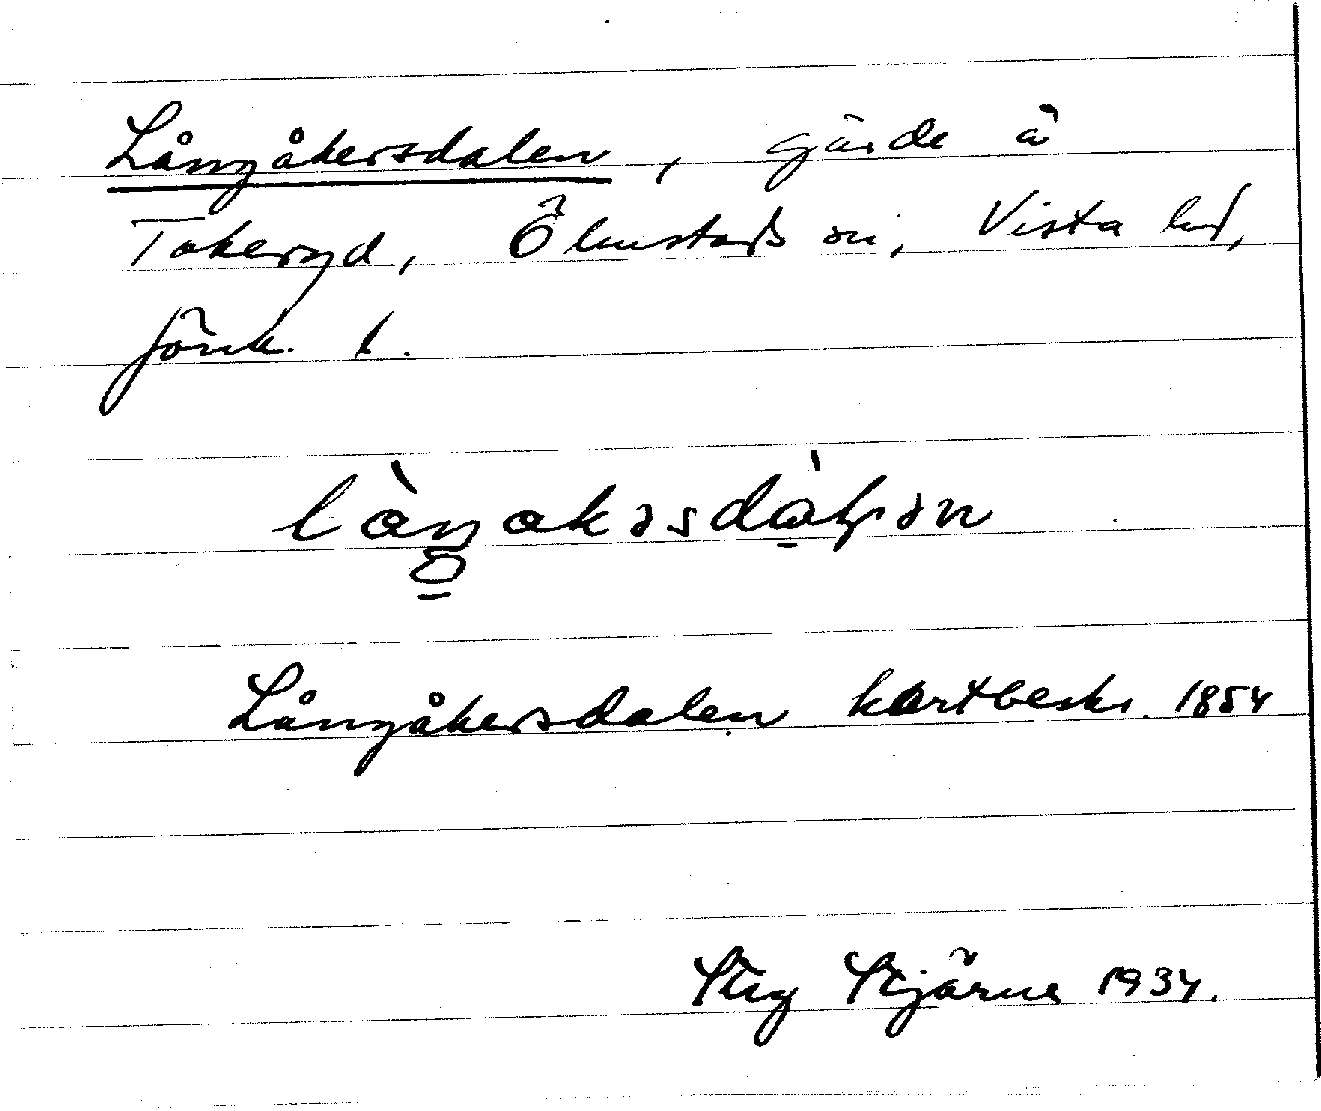 Långåkersdalen, gärde å
Tokeryd, Ölmstads sn, Vista hd,
Jönk. l.
Långåkersdalen kartbeskr. 1854
Stig Stjärne 1934.